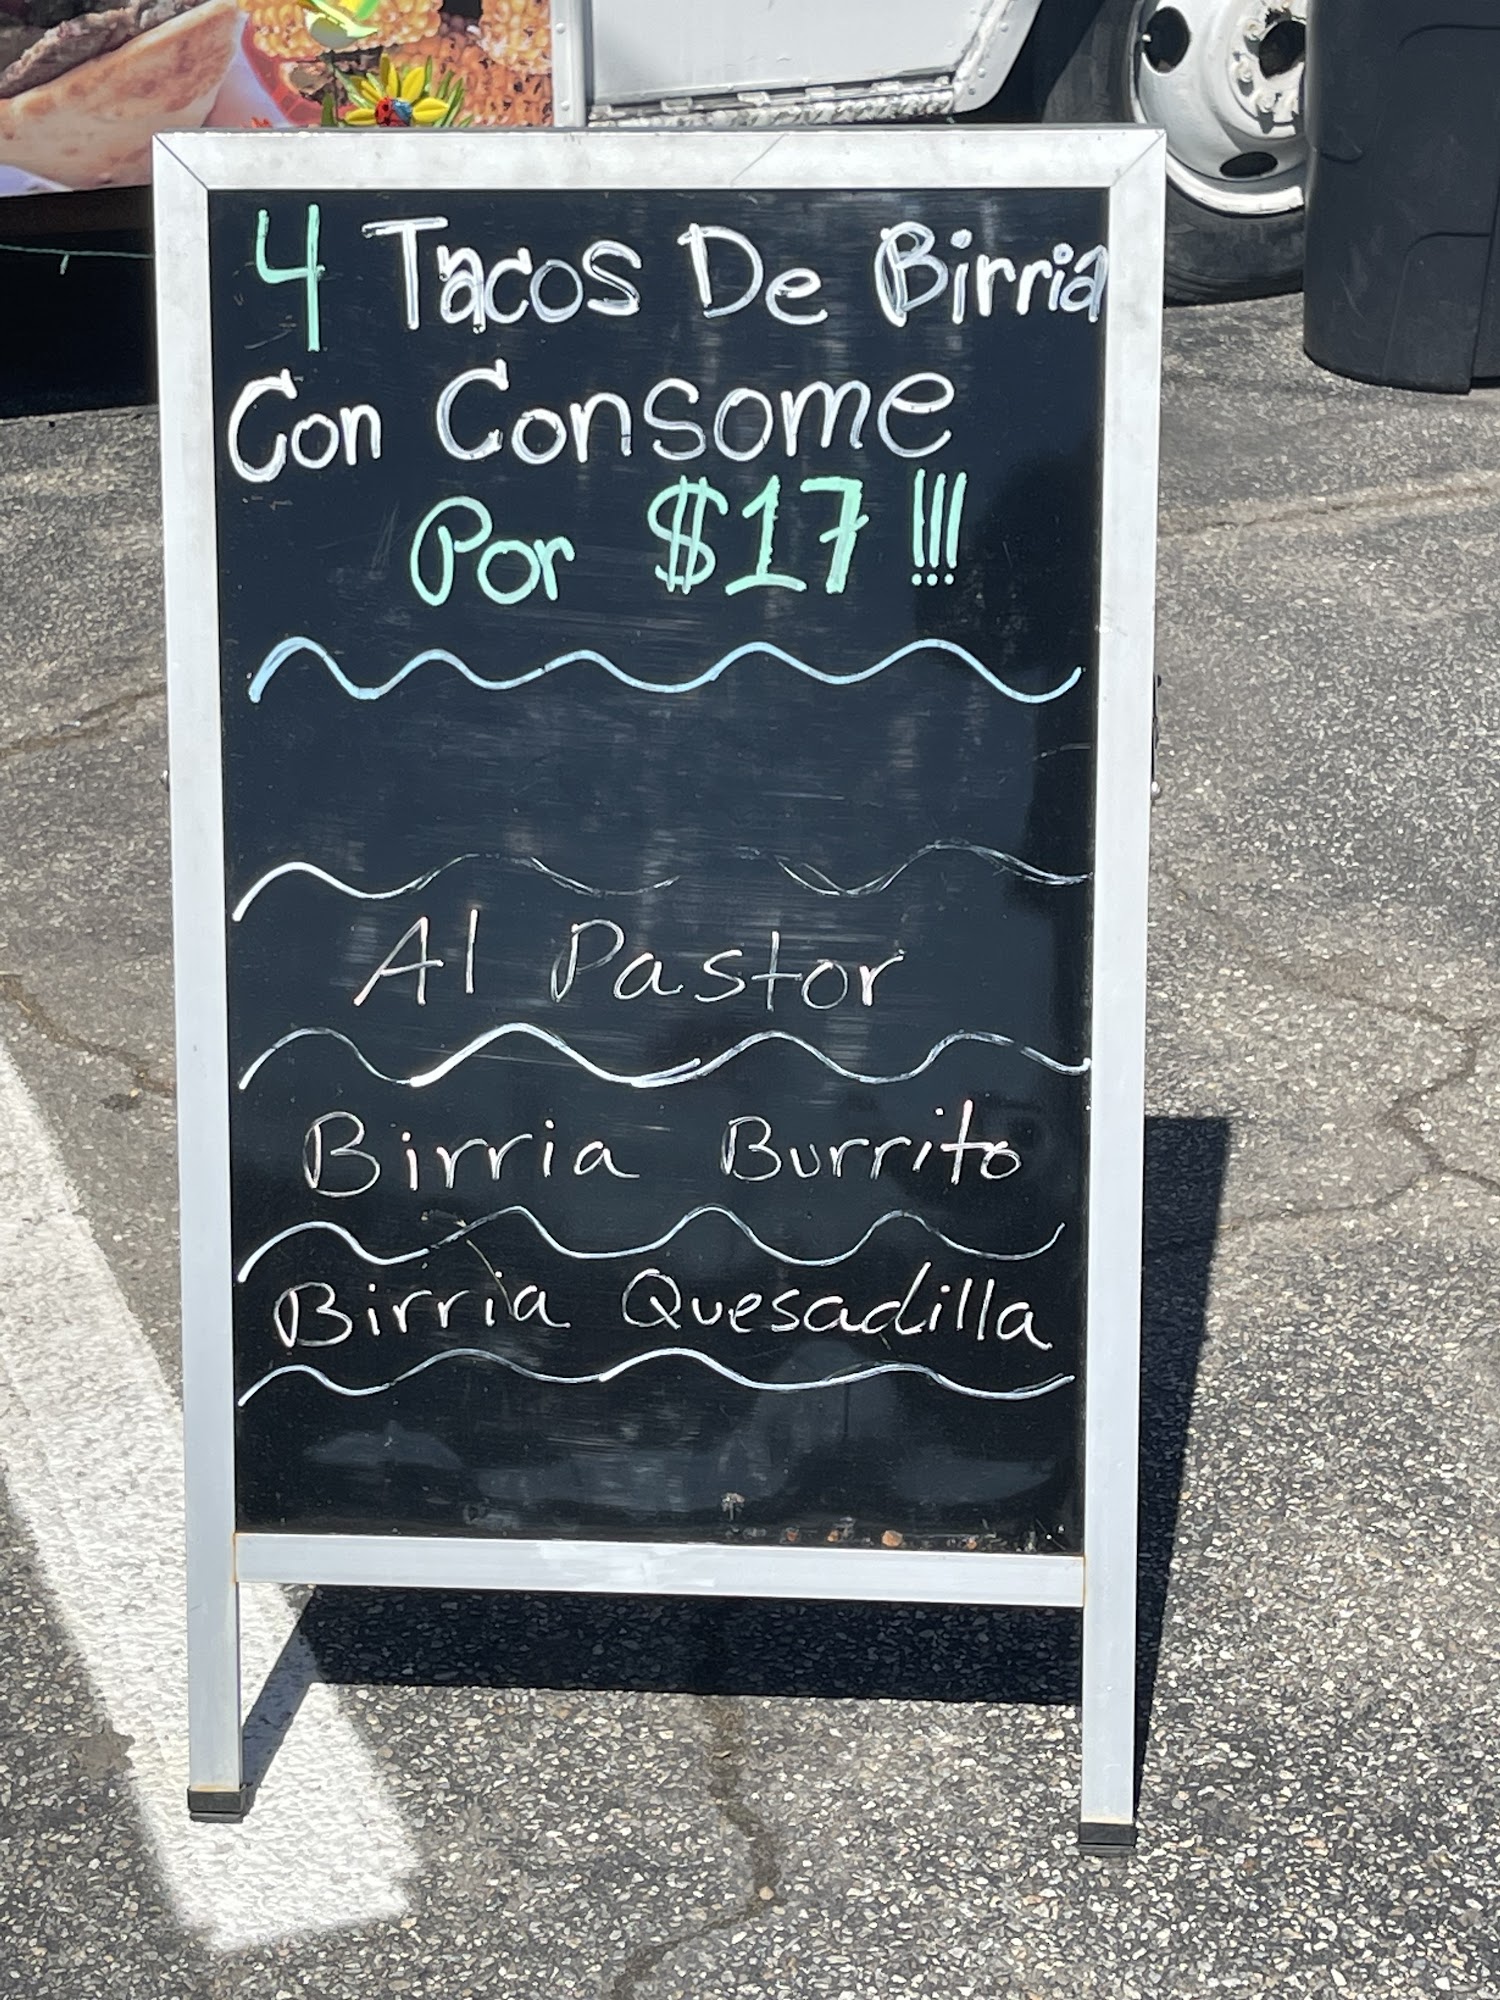 4 Tacos De Birria
Con Consome
Por $17 !!!
Al Pastor
Birria Burrito
Birria Quesadilla